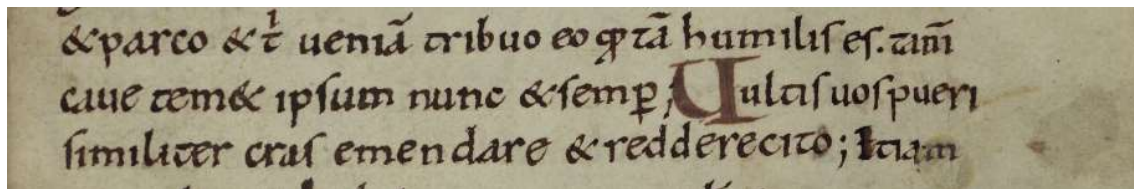 &parco & t̄ ueniā tribuo eo qꝓ tā humilis es. tam̄
caue tem& ipsum nunc & semꝑ; Uultis uos pueri
similiter cras emendare & reddere cito; Etiam